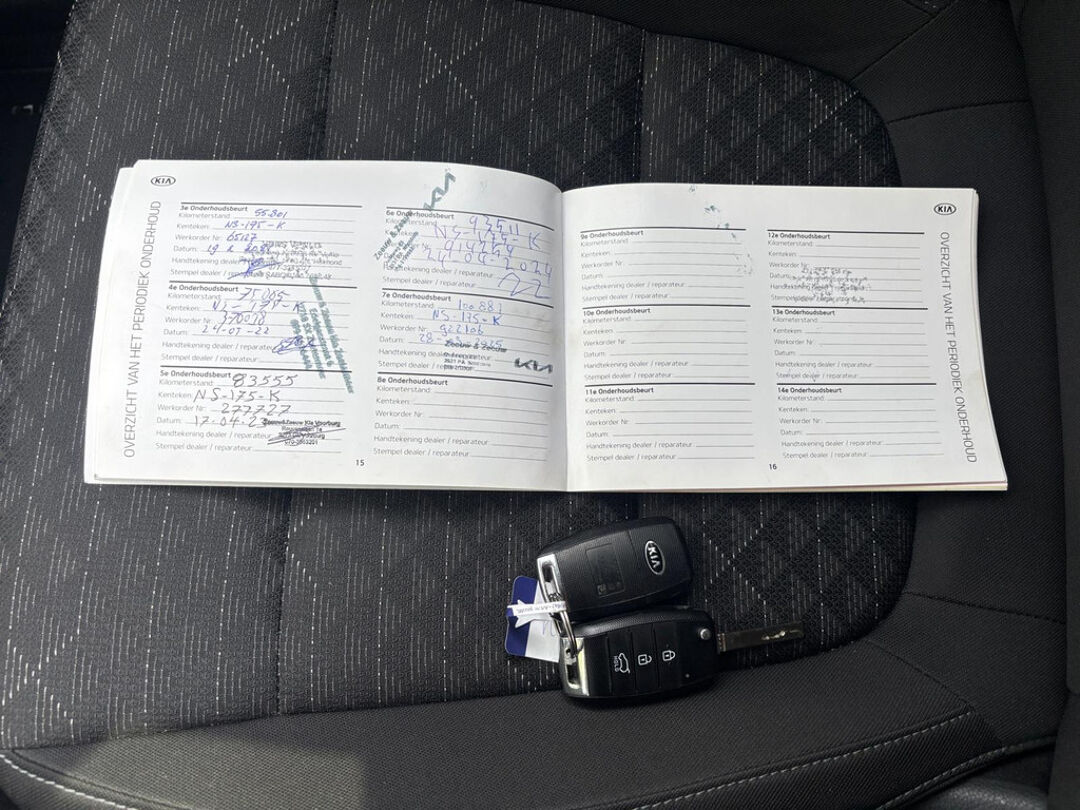 KIA
OVERZICHT VAN HET PERIODIEK ONDERHOUD
3e Onderhoudsbeurt
Kilometerstand 55801
Kenteken: NS-175-K
Werkorder Nr:
Datum:
Handtekening dealer / reparateur
Stempel dealer / reparateur
4e Onderhoudsbeurt
Kilometerstand: 75005
Kenteken: NS-175-K
Werkorder Nr: 370078
Datum: 24-07-22
Handtekening dealer / reparateur
Stempel dealer / reparateur
5e Onderhoudsbeurt
Kilometerstand: 83555
Kenteken: NS-175-K
Werkorder Nr: 277727
Datum: 17-04-2
Zeeuw&Zeeuw Kia Voorburg
Handtekening dealer / reparateur
Stempel dealer / reparateur
070-3863201
15
6e Onderhoudsbeurt
Kilometerstand: 93511
Kenteken: NS-175-K
Werkorder Nr:
Datum: 24-04-2024
Handtekening dealer / reparateur
Stempel dealer / reparateur
KIA
7e Onderhoudsbeurt
Kilometerstand: 100883
Kenteken: NS-175-K
Werkorder Nr: 922106
Datum: 28- 2025
Zeeuw & Zeeuw
Handtekening dealer / reparateur
Stempel dealer / reparateur
KIA
8e Onderhoudsbeurt
Kilometerstand:
Kenteken:
Werkorder Nr:
Datum:
Handtekening dealer / reparateur:
Stempel dealer / reparateur:
9e Onderhoudsbeurt
Kilometerstand:
Kenteken:
Werkorder Nr:
Datum:
Handtekening dealer / reparateur:
Stempel dealer / reparateur:
10e Onderhoudsbeurt
Kilometerstand:
Kenteken:
Werkorder Nr:
Datum:
Handtekening dealer / reparateur:
Stempel dealer / reparateur:
11e Onderhoudsbeurt
Kilometerstand:
Kenteken:
Werkorder Nr:
Datum:
Handtekening dealer / reparateur:
Stempel dealer / reparateur:
16
12e Onderhoudsbeurt
Kilometerstand:
Kenteken:
Werkorder Nr:
Datum:
Handtekening dealer / reparateur:
Stempel dealer / reparateur:
13e Onderhoudsbeurt
Kilometerstand:
Kenteken:
Werkorder Nr:
Datum:
Handtekening dealer / reparateur:
Stempel dealer / reparateur:
14e Onderhoudsbeurt
Kilometerstand:
Kenteken:
Werkorder Nr:
Datum:
Handtekening dealer / reparateur:
Stempel dealer / reparateur:
KIA
OVERZICHT VAN HET PERIODIEK ONDERHOUD
KIA
HOLD